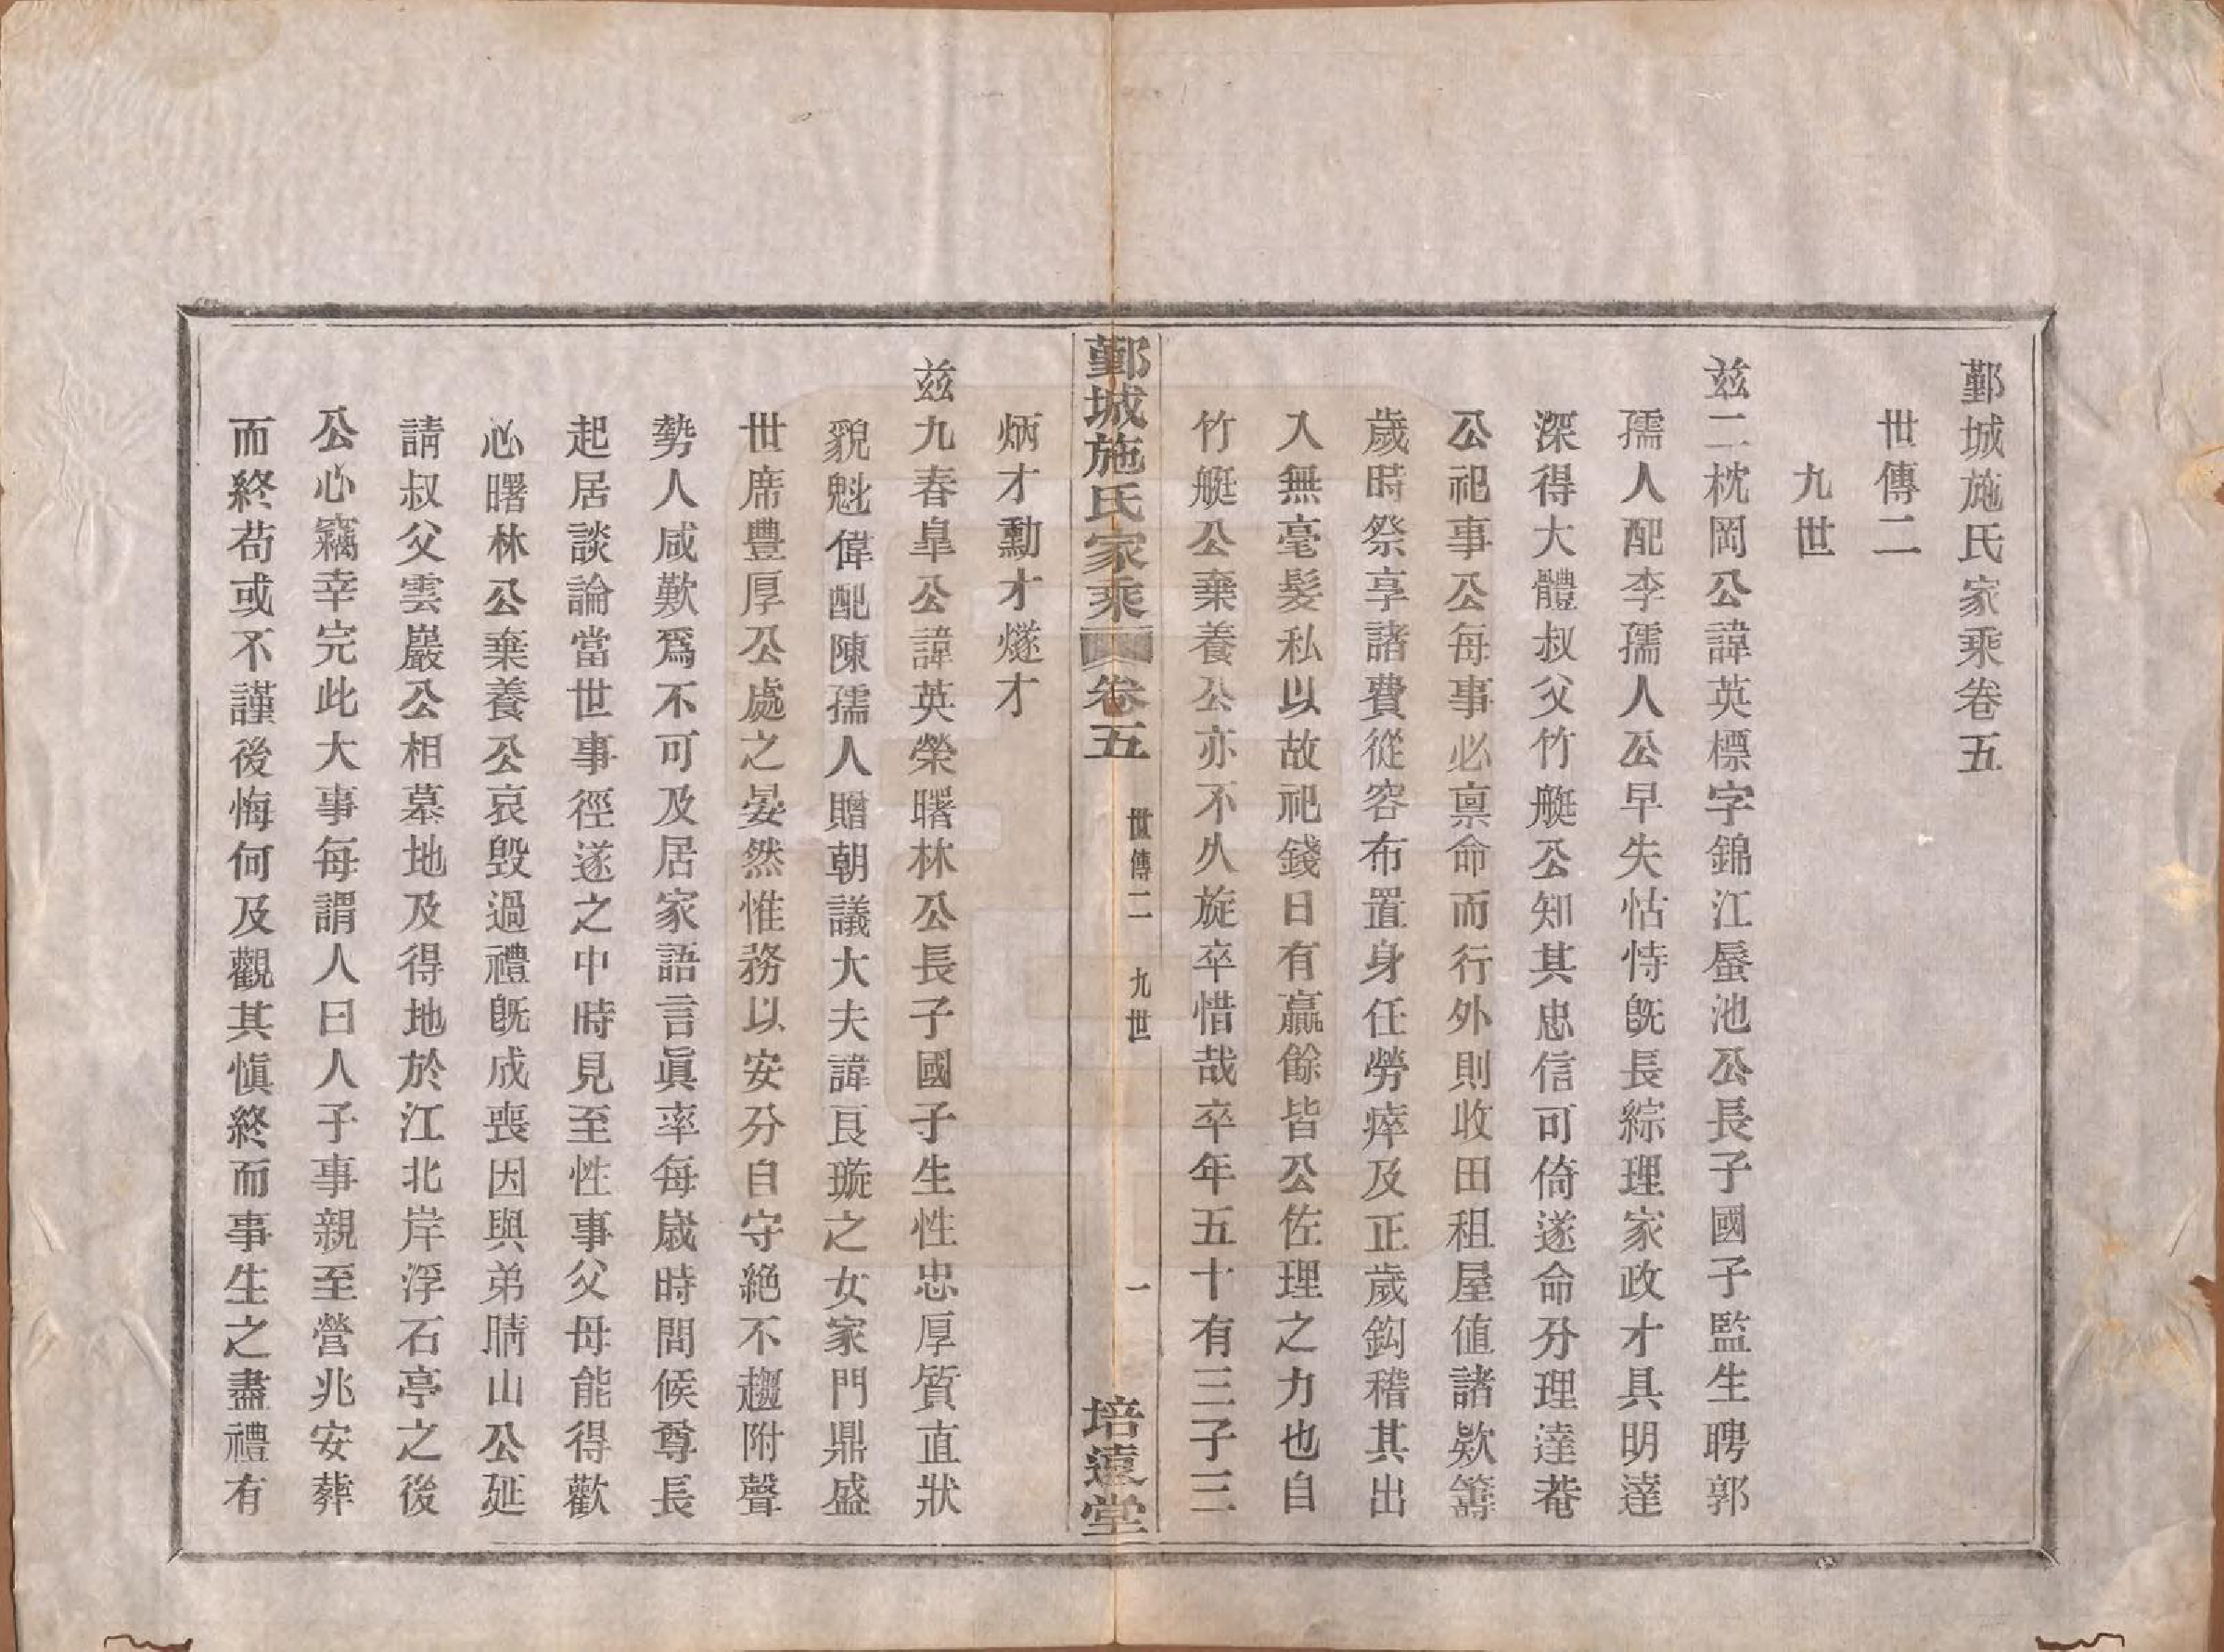 鄞城施氏家乘卷五
世傳二
九世
兹二枕岡公諱英標字錦江蜃池公長子國子監生聘郭
孺人配李孺人公早失怙恃旣長綜理家政才具明達
深得大體叔父竹艇公知其忠信可倚遂命分理達菴
公祀事公每事必禀命而行外則收田租屋值諸欵籌
歲時祭享諸費從容布置身任勞瘁及正歲鈎稽其出
入無毫髮私以故祀錢日有贏餘皆公佐理之力也自
竹艇公棄養公亦不久旋卒惜哉卒年五十有三子三
鄞城施氏家乘 卷五 世傳二 九世 一 培遠堂
炳才勳才燧才
兹九春皐公諱英榮曙林公長子國子生性忠厚質直狀
貌魁偉配陳孺人贈朝議大夫諱良璇之女家門鼎盛
世席豐厚公處之晏然惟務以安分自守絶不趨附聲
勢人咸歎爲不可及居家語言眞率每歲時問候尊長
起居談論當世事徑遂之中時見至性事父母能得歡
心曙林公棄養公哀毁過禮旣成喪因與弟晴山公延
請叔父雲巖公相墓地及得地於江北岸浮石亭之後
公心竊幸完此大事每謂人曰人子事親至營兆安葬
而終苟或不謹後悔何及觀其愼終而事生之盡禮有